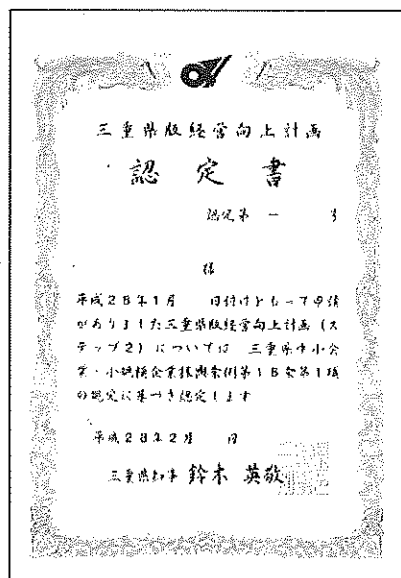 三重県版経営向上計画
認定書
認定第 一 号
様
平成28年1月 日付けをもって申請
がありました三重県版経営向上計画(ス
テップ2)については 三重県中小企
業・小規模企業振興条例第16条第1項
の規定に基づき認定します
平成28年2月 日
三重県知事 鈴木 英敬